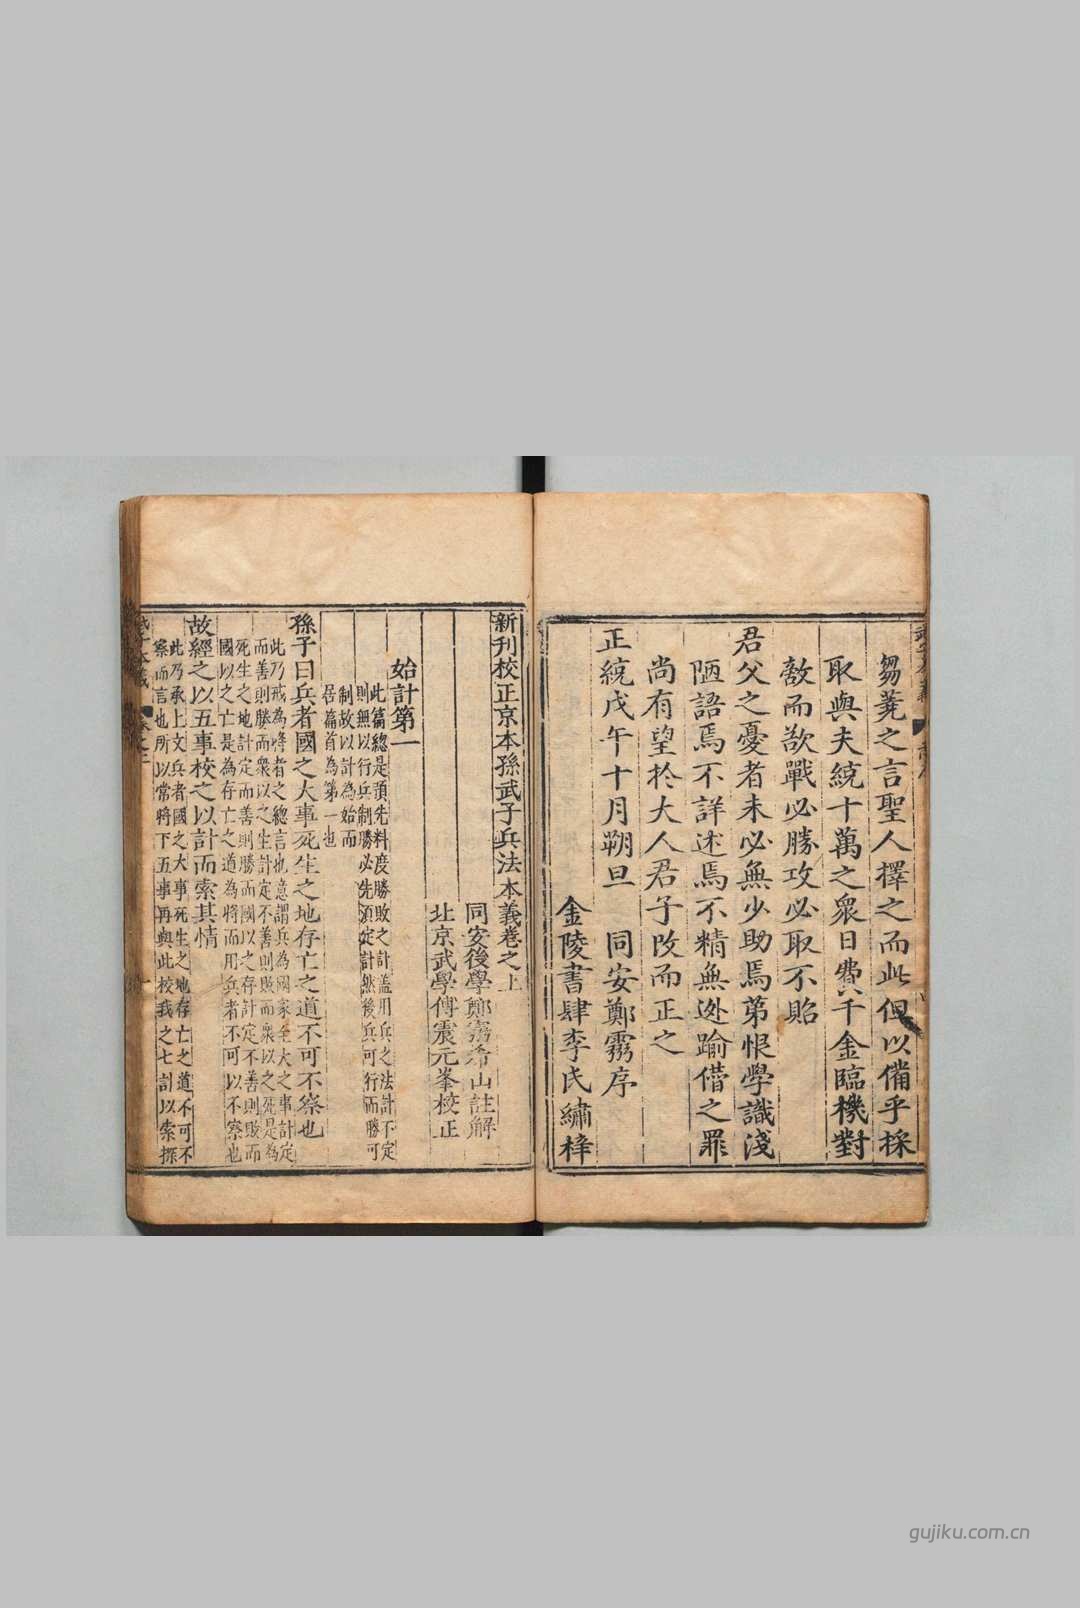 芻蕘之言聖人擇之而此但以備乎採
取與夫統十萬之衆日費千金臨機對
敵而欲戰必勝攻必取不貽
君父之憂者未必無少助焉第恨學識淺
陋語焉不詳述焉不精無迯踰僣之罪
尚有望於大人君子改而正之
正統戊午十月朔旦 同安鄭靈序
金陵書肆李氏繡梓
新刊校正京本孫武子兵法本義卷之上
同安後學鄭靈希山註解
北京武學傅震元峯校正
始計第一
此篇總是預先料度勝敗之計盖用兵之法計不定
則無以行兵制勝必先須定計然後兵可行而勝可
制故以計為始而
居篇首為第一也
孫子曰兵者國之大事死生之地存亡之道不可不察也
此乃戒為將者之總言也意謂兵為國家至大之事計定
而善則勝而衆以之生計定不善則敗而衆以之死是為
死生之地計定而善則勝而國以之存計定不善則敗而
國以之亡是為存亡之道為將而用兵者不可以不察也
故經之以五事校之以計而索其情
此乃承上文兵者國之大事死生之地存亡之道不可不
察而言也所以常將下五事再與此校我之七計以索探
gujiku.com.cn